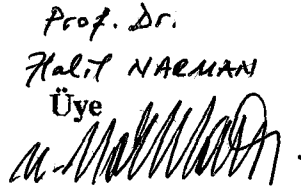 Prof. Dr.
Halit NARMAN
Üye